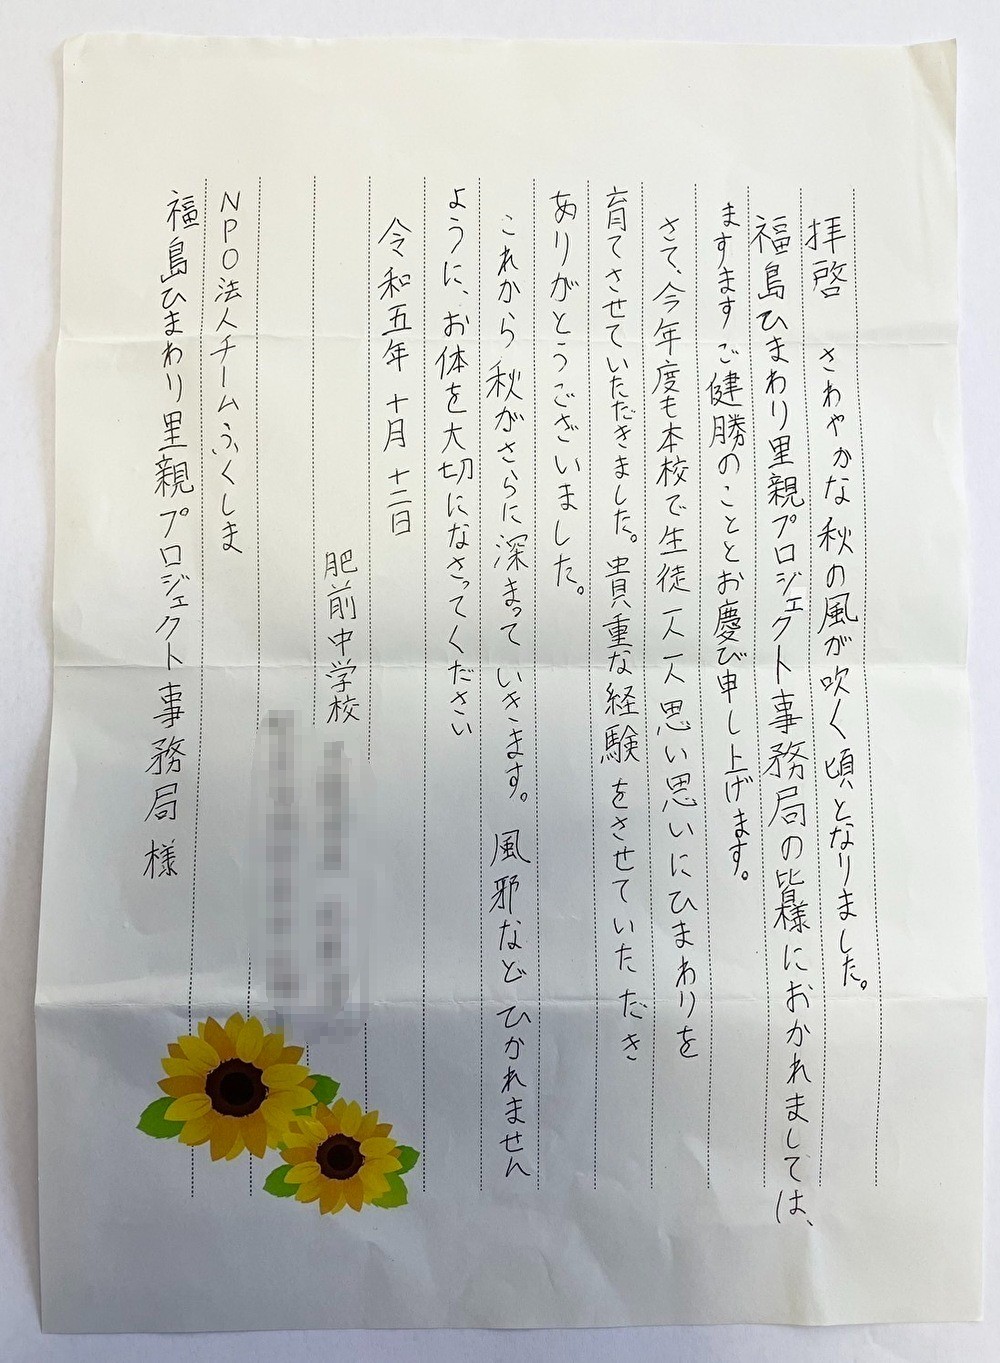 拝啓　さわやかな秋の風が吹く頃となりました。
福島ひまわり里親プロジェクト事務局の皆様におかれましては、
ますますご健勝のこととお慶び申し上げます。
さて、今年度も本校で生徒一人一人思い思いにひまわりを
育てさせていただきました。貴重な経験をさせていただき
ありがとうございました。
これから秋がさらに深まっていきます。風邪などひかれません
ように、お体を大切になさってください
令和五年十月十二日
肥前中学校
NPO法人チームふくしま
福島ひまわり里親プロジェクト事務局様